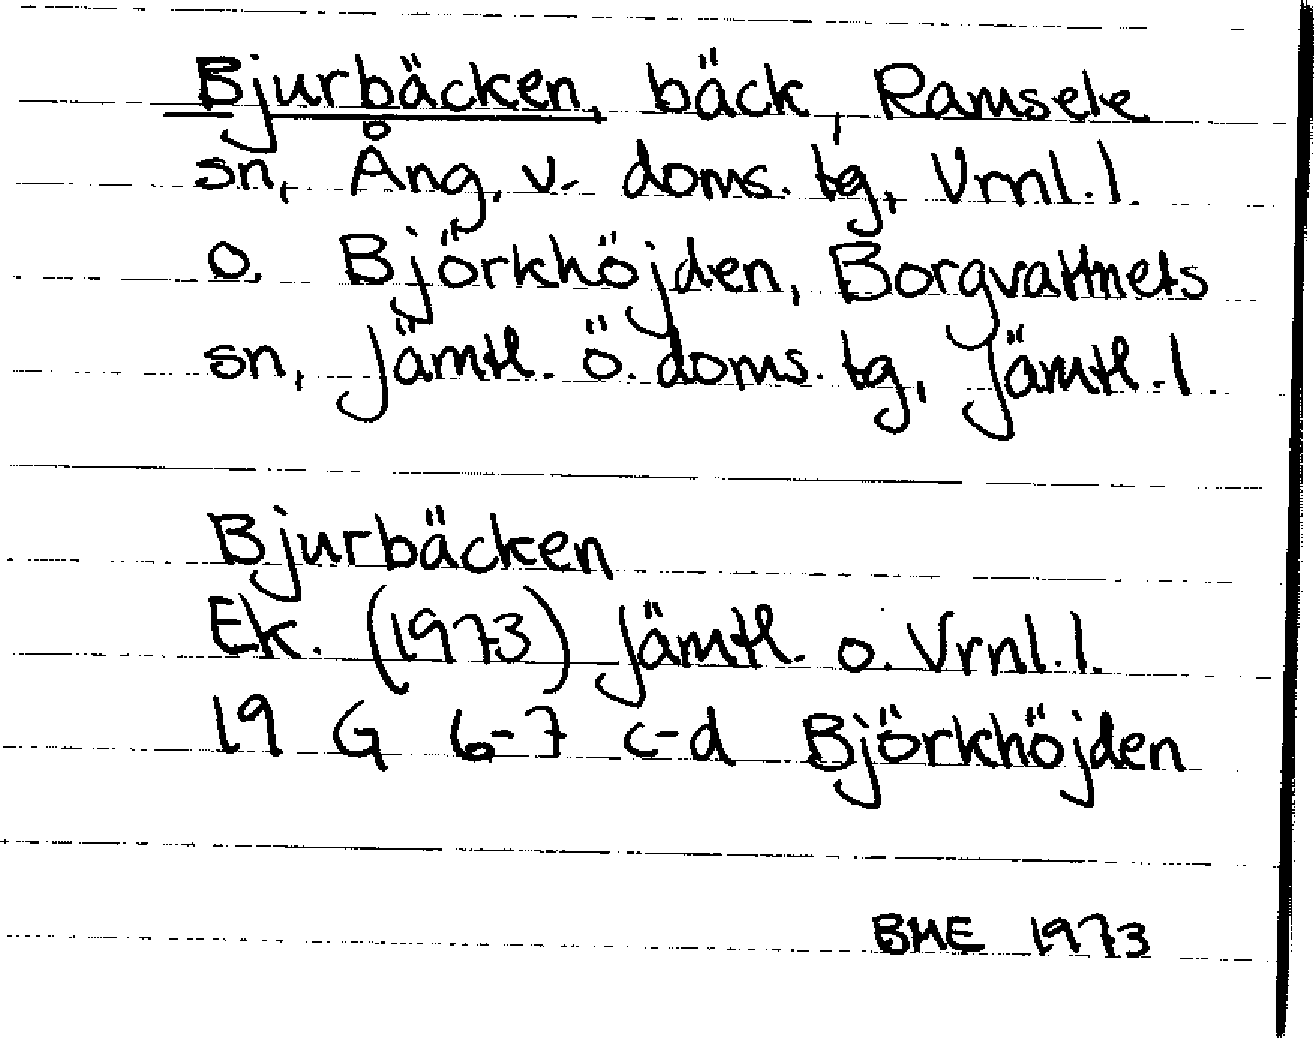 Bjurbäcken, bäck, Ramsele
sn, Ång. v. doms. tg, Vrnl. l.
o. Björkhöjden, Borgvattnets
sn, Jämtl. ö. doms. tg, Jämtl. l.
Bjurbäcken
Ek. (1973) Jämtl. o. Vrnl. l.
19 G 6-7 c-d Björkhöjden
BME 1973